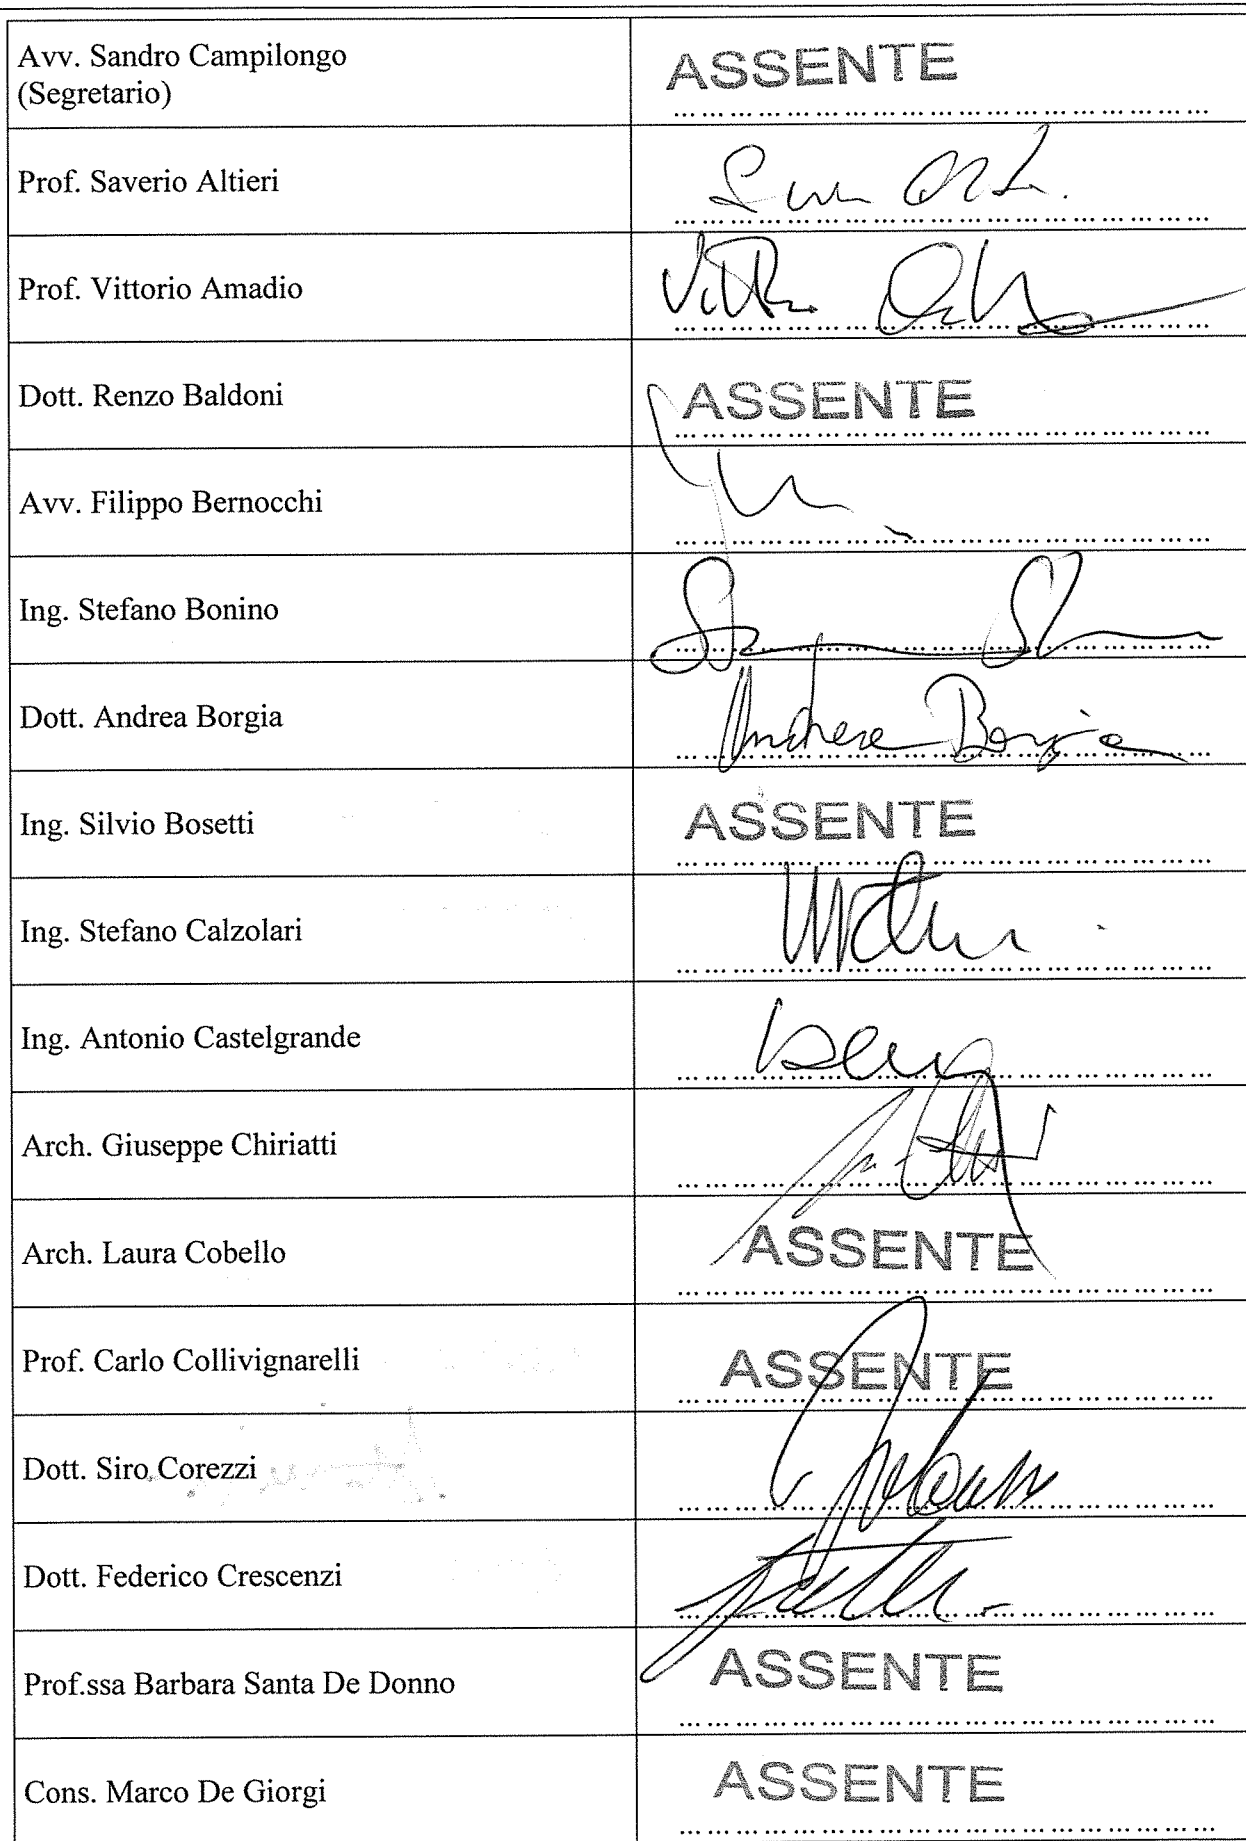 Avv. Sandro Campilongo
(Segretario)
ASSENTE
Prof. Saverio Altieri
Prof. Vittorio Amadio
Dott. Renzo Baldoni
ASSENTE
Avv. Filippo Bernocchi
Ing. Stefano Bonino
Dott. Andrea Borgia
Andrea Borgia
Ing. Silvio Bosetti
ASSENTE
Ing. Stefano Calzolari
Ing. Antonio Castelgrande
Arch. Giuseppe Chiriatti
Arch. Laura Cobello
ASSENTE
Prof. Carlo Collivignarelli
ASSENTE
Dott. Siro Corezzi
Dott. Federico Crescenzi
Prof.ssa Barbara Santa De Donno
ASSENTE
Cons. Marco De Giorgi
ASSENTE